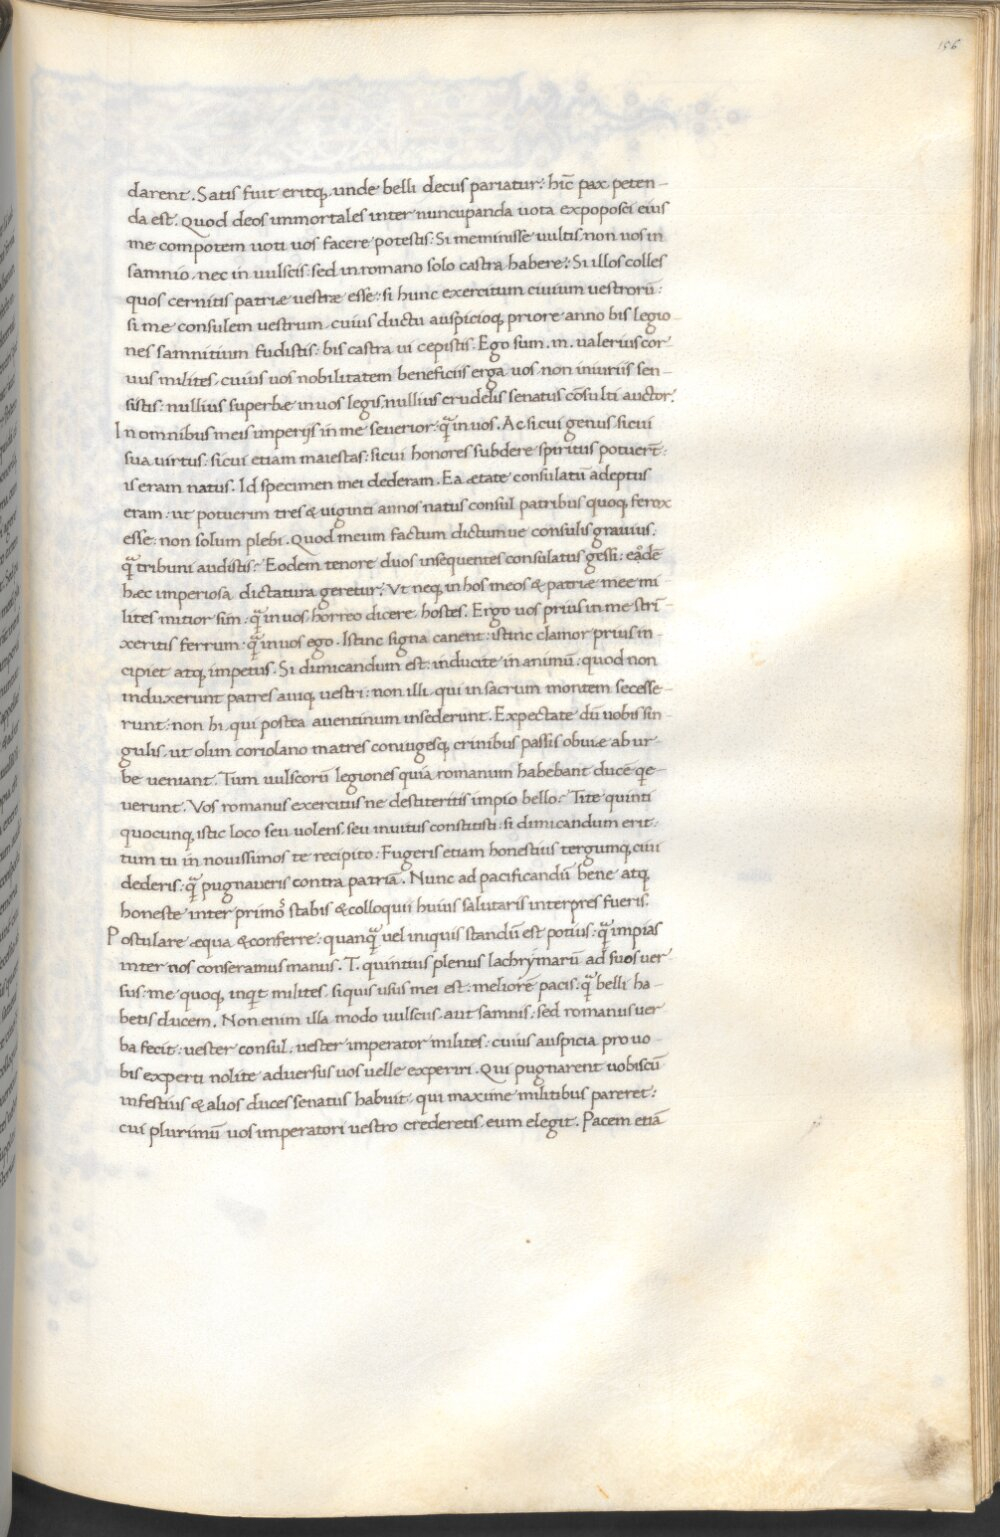 156
darent. Satis fuit eritq; unde belli decus pariatur: hic̄ pax peten-
da est. Quod deos immortales inter nuncupanda uota expoposci eius
me compotem uoti uos facere potestis: Si meminisse uultis. non uos in
samnio. nec in uulscis: sed in romano solo castra habere: Si illos colles
quos cernitis patriæ uestræ esse: si hunc exercitum ciuium uestrorū:
si me consulem uestrum. cuius ductu auspicioq; priore anno bis legio-
nes samnitium fudistis: bis castra ui cepistis. Ego sum .m. ualerius cor-
uus milites. cuius uos nobilitatem beneficiis erga uos. non iniuriis sen-
sistis: nullius superbæ in uos legis. nullius crudelis senatus cōsulti auctor.
In omnibus meis imperijs in me seuerior: q̄ in uos. Ac si cui genus. si cui
sua uirtus: si cui etiam maiestas: si cui honores subdere spiritus potuerт̄:
is eram natus. Id specimen mei dederam. Ea ætate consulatū adeptus
eram: ut potuerim tres & uiginti annos natus consul patribus quoq; ferox
esse: non solum plebi. Quod meum factum dictumue consulis grauius.
q̄ tribuni audistis: Eodem tenore duos insequentes consulatus gessi: eadē
hæc imperiosa dictatura geretur. Vt neq; in hos meos & patriæ meæ mi-
lites mitior sim: q̄ in uos. horreo dicere hostes. Ergo uos prius in me stri-
xeritis ferrum: q̄ in uos ego. Istinc signa canent: istinc clamor prius in-
cipiet atq; impetus. Si dimicandum est: inducite in animū: quod non
induxerunt patres auiq; uestri: non illi. qui in sacrum montem secesse-
runt: non hi. qui postea auentinum insederunt. Expectate dū uobis sin-
gulis. ut olim coriolano matres coniugesq; crinibus passis obuiæ ab ur-
be ueniant. Tum uulscorū legiones quia romanum habebant ducē qe-
uerunt. Vos romanus exercitus ne destiteritis impio bello: Tite quinti
quocunq; istic loco seu uolens. seu inuitus constitisti: si dimicandum erit:
tum tu in nouissimos te recipito: Fugeris etiam honestius tergumq; ciui
dederis: q̄ pugnaueris contra patriā. Nunc ad pacificandū bene atq;
honeste inter primos stabis & colloquii huius salutaris interpres fueris.
Postulare æqua & conferre: quanq̄ uel iniquis standū est potius: q̄ impias
inter nos conseramus manus. T. quintius plenus lachrymarū ad suos uer-
sus: me quoq; inqt milites. si quis usus mei est: meliorē pacis: q̄ belli ha-
betis ducem. Non enim illa modo uulscus. aut samnis: sed romanus uer-
ba fecit: uester consul. uester imperator milites: cuius auspicia pro uo-
bis experti nolite aduersus uos uelle experiri. Qui pugnarent uobiscū
infestius & alios duces senatus habuit. qui maxime militibus pareret:
cui plurimū uos imperatori uestro crederetis. eum elegit. Pacem etiā